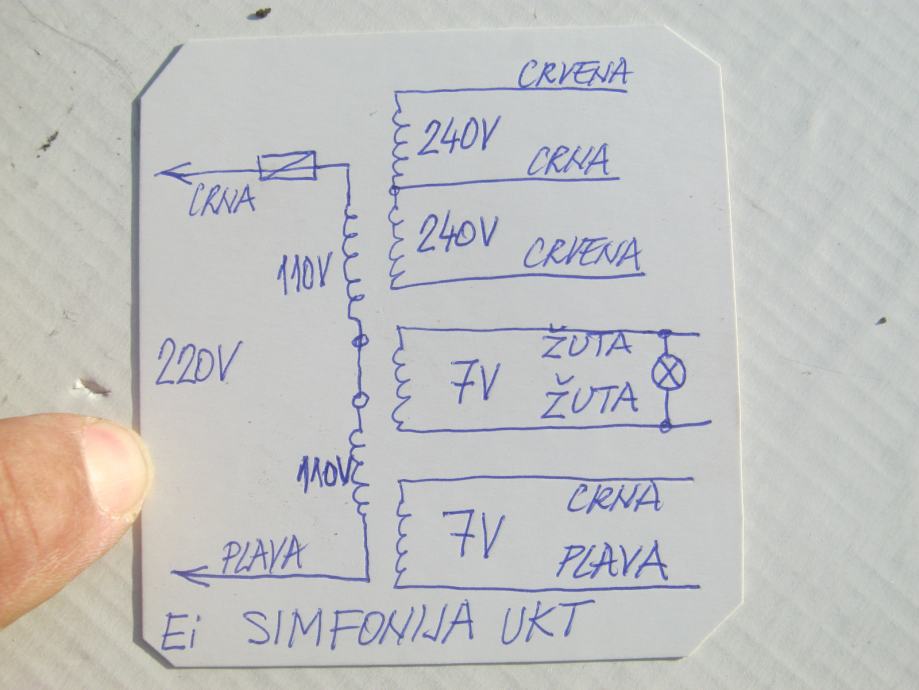 CRVENA
240V
CRNA
CRNA
240V
CRVENA
110V
220V
ŽUTA
7V
ŽUTA
110V
CRNA
7V
PLAVA
PLAVA
Ei SIMFONIJA UKT